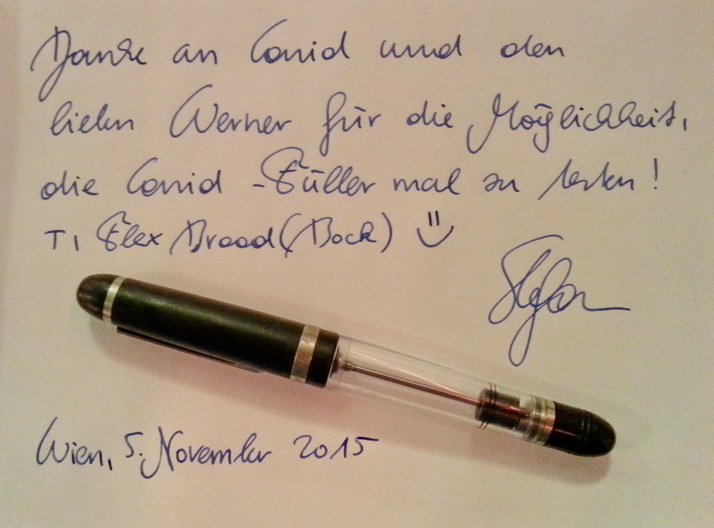 Danke an Conid und den
lieben Werner für die Möglichkeit,
die Conid - Füller mal zu testen!
Ti Flex Broad (Bock) ü
Stefan
Wien, 5. November 2015